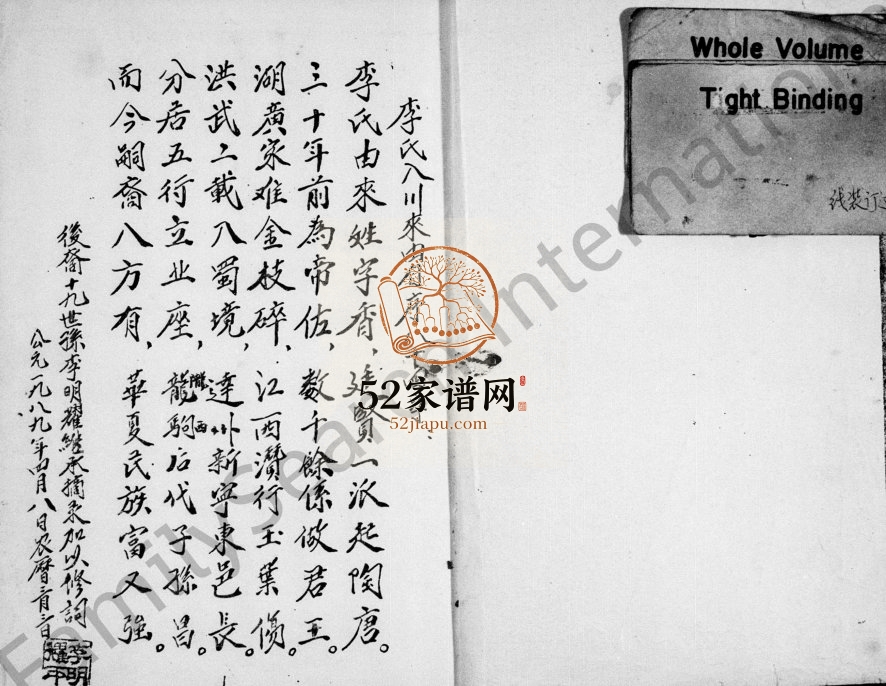 Whole Volume
Tight Binding
线装订
李氏入川來由
李氏由來姓字香,廷賢一派起陶唐。
三十年前為帝佐,数千餘係做君王。
湖廣家难金枝碎,江西濽行玉葉傷。
洪武二載入蜀境,達州新宁東邑長。
分居五行立业座,龍駒后代子孫昌。
隴西
而今嗣裔八方有,華夏民族富又強。
後裔十九世孫李明耀継承摘录加以修詞
公元一九八九年四月八日农曆三月三日
李明
52家谱网
52jiapu.com
FamilySearch International